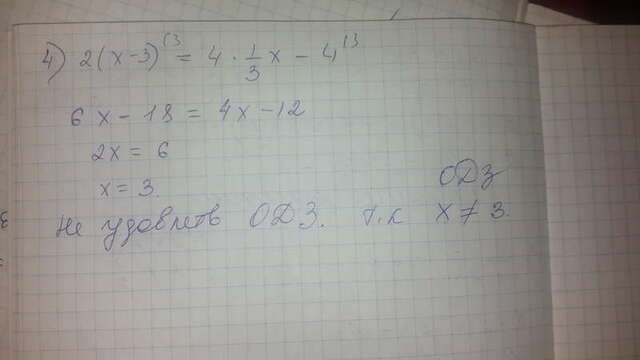 4) 2(x-3)^{(3} = 4 · 1/3 x - 4^{(3}
6x - 18 = 4x - 12
2x = 6
x = 3.
ОДЗ
Не удовлетв ОДЗ. т.к x ≠ 3.